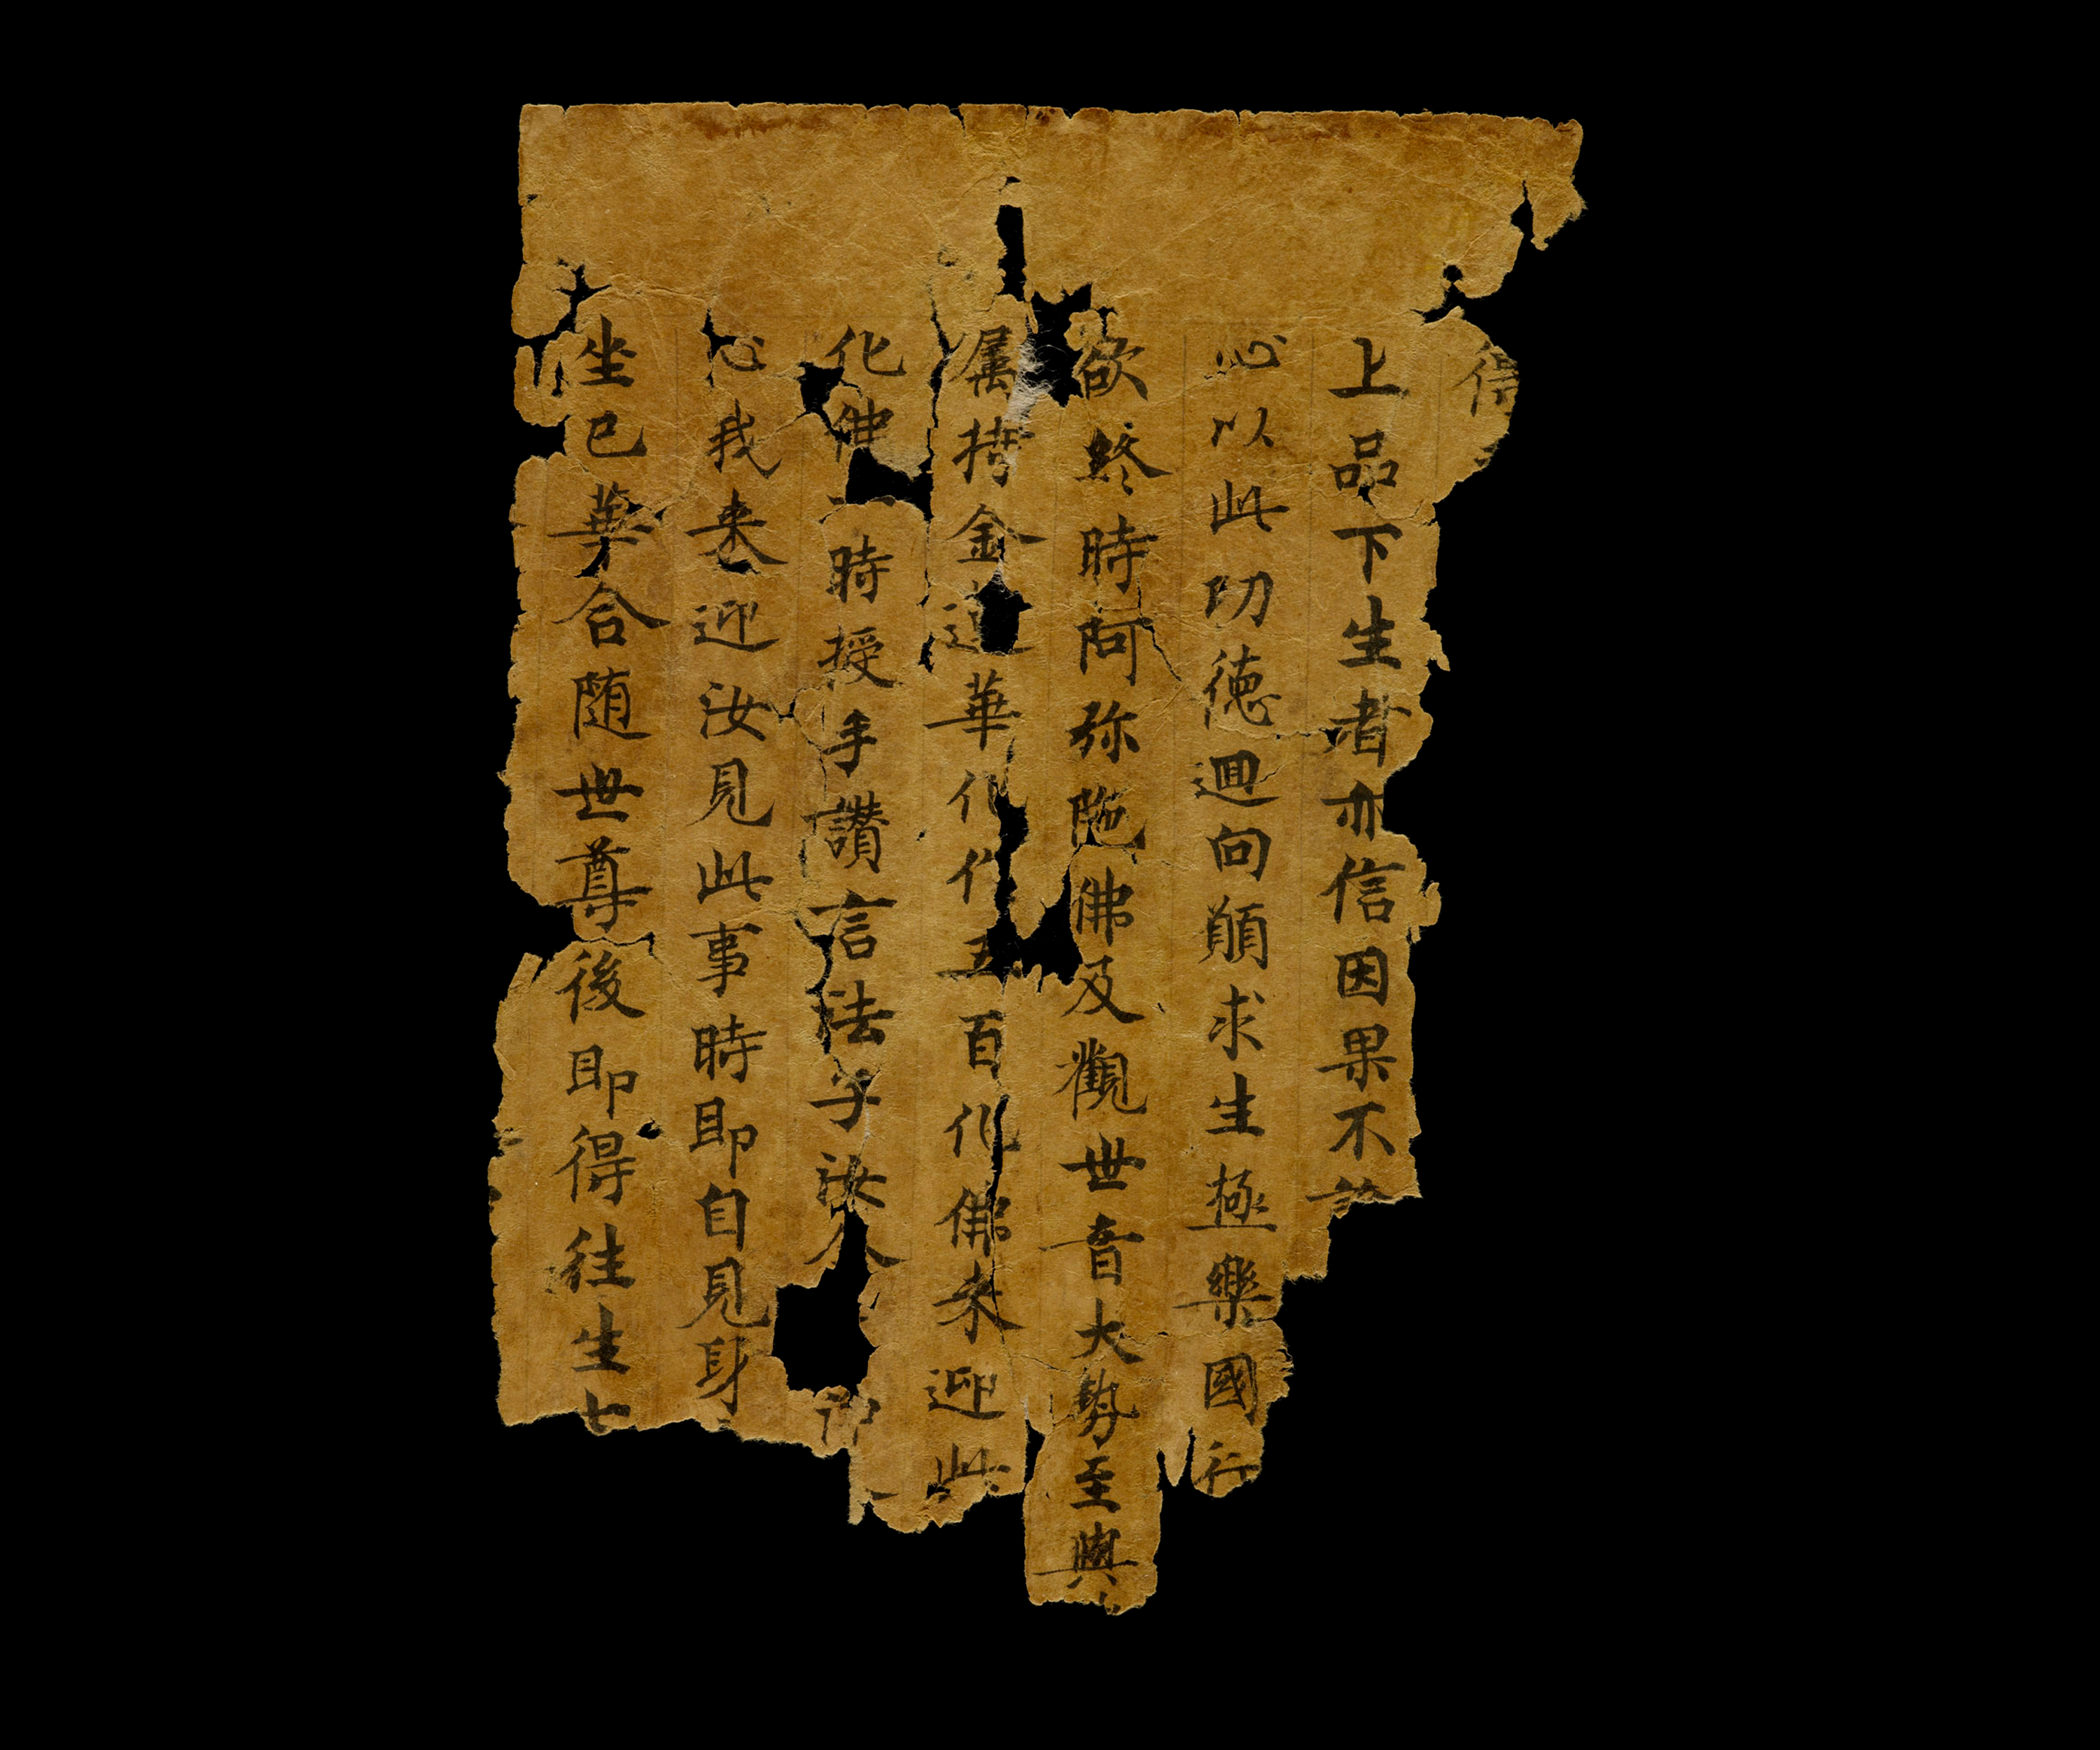 得
上品下生者亦信因果不謗
心以此功德迴向願求生極樂國行
欲終時阿弥陁佛及觀世音大勢至與
属持金蓮華化作五百化佛来迎此
化佛一時授手讚言法子汝今
心我来迎汝見此事時即自見身
坐已華合随世尊後即得往生七